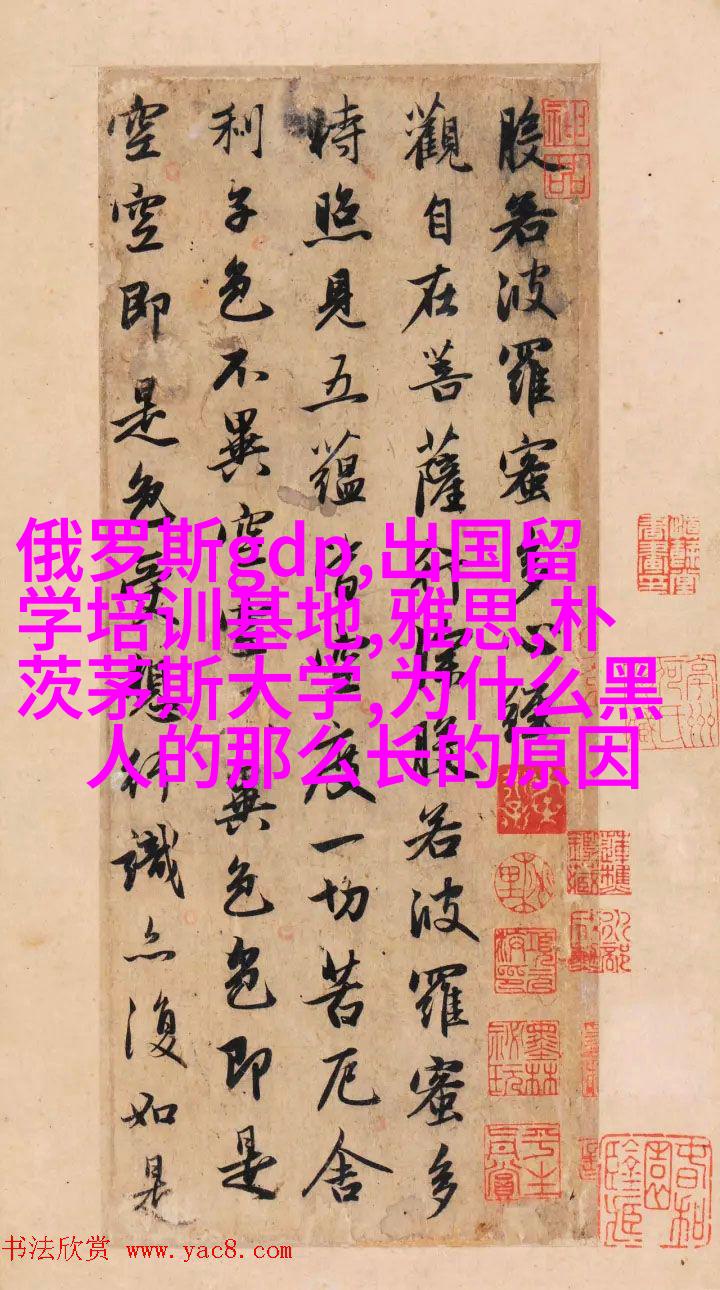 般若波羅蜜多心經
觀自在菩薩行深般若波羅蜜多
時照見五蘊皆空度一切苦厄舍
利子色不異空空不異色色即是
空空即是色受想行識亦復如是
俄罗斯gdp,出国留
学培训基地,雅思,朴
茨茅斯大学,为什么黑
人的那么长的原因
书法欣赏 www.yac8.com